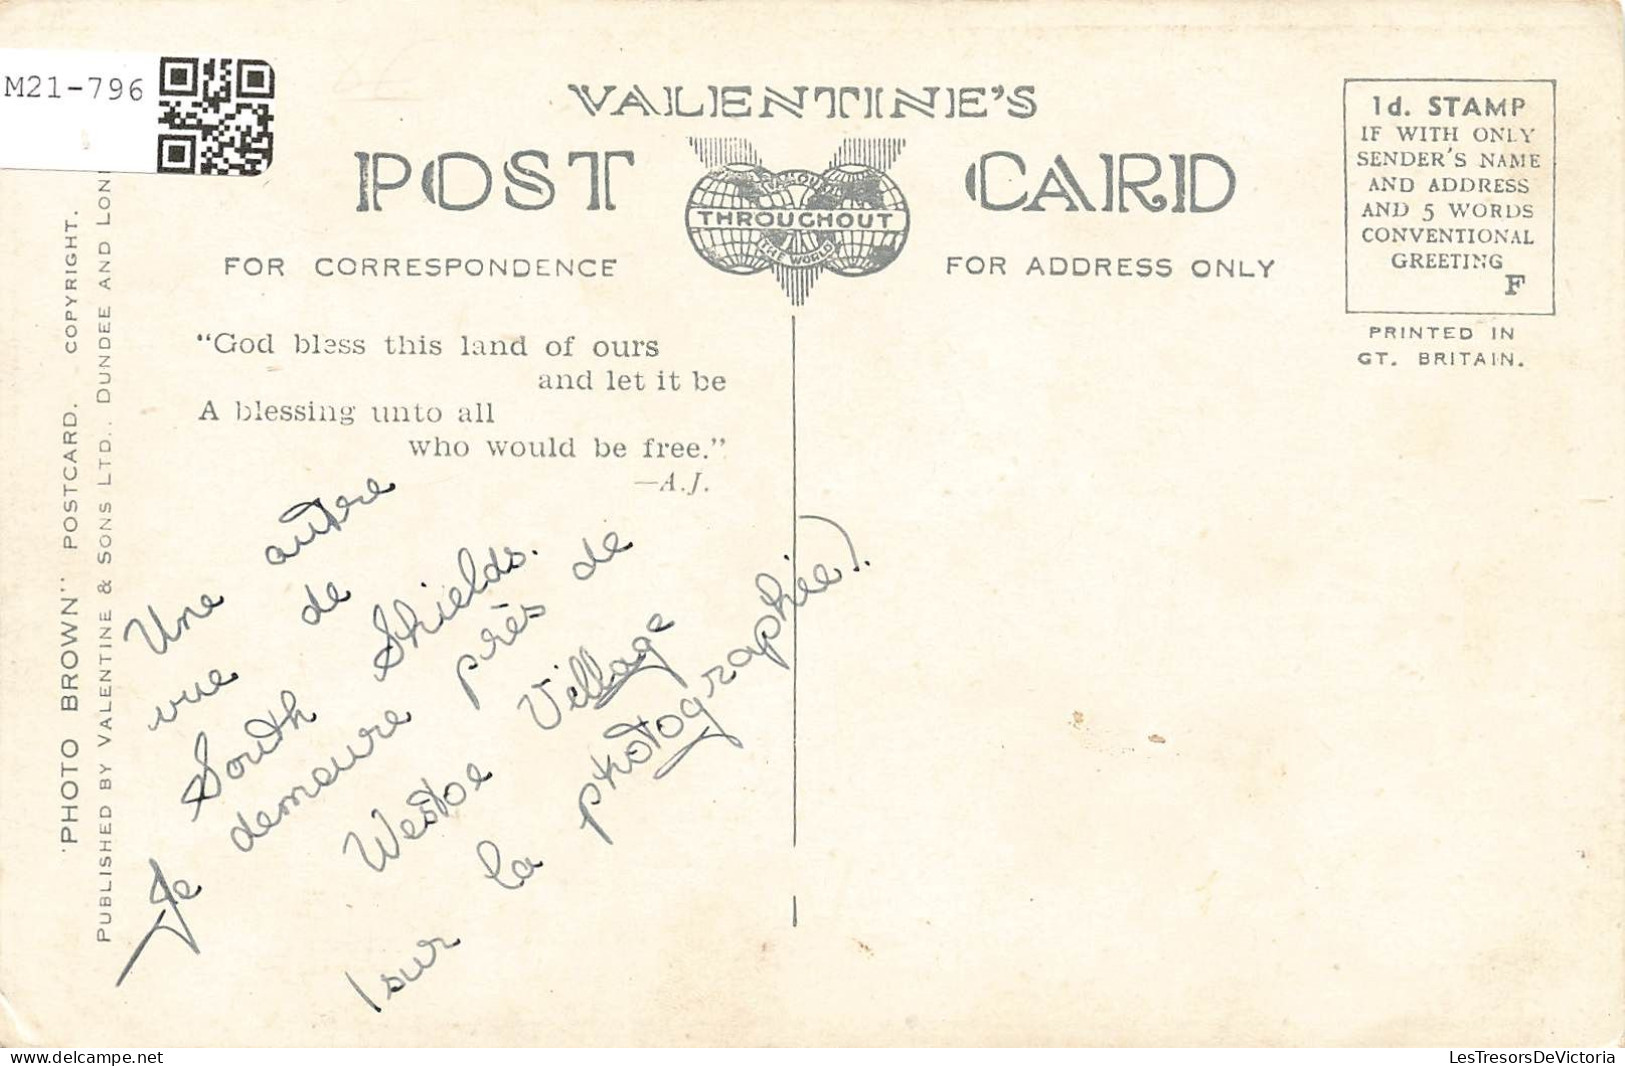 M21-796
VALENTINE'S
POST CARD
VALOUR
THROUGHOUT
THE WORLD
FOR CORRESPONDENCE
FOR ADDRESS ONLY
1d. STAMP
IF WITH ONLY
SENDER'S NAME
AND ADDRESS
AND 5 WORDS
CONVENTIONAL
GREETING
F
PRINTED IN
GT. BRITAIN.
"God bless this land of ours
and let it be
A blessing unto all
who would be free."
—A.J.
Une autre
vue de
South Shields.
Je demeure près de
Westoe Village
(sur la photographie).
"PHOTO BROWN" POSTCARD. COPYRIGHT.
PUBLISHED BY VALENTINE & SONS LTD., DUNDEE AND LON
delcampe.net
LesTresorsDeVictoria